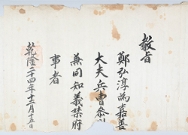 敎旨
鄭弘淳為嘉善
大夫兵曹參判
兼同知義禁府
事者
乾隆二十四年十二月十五日